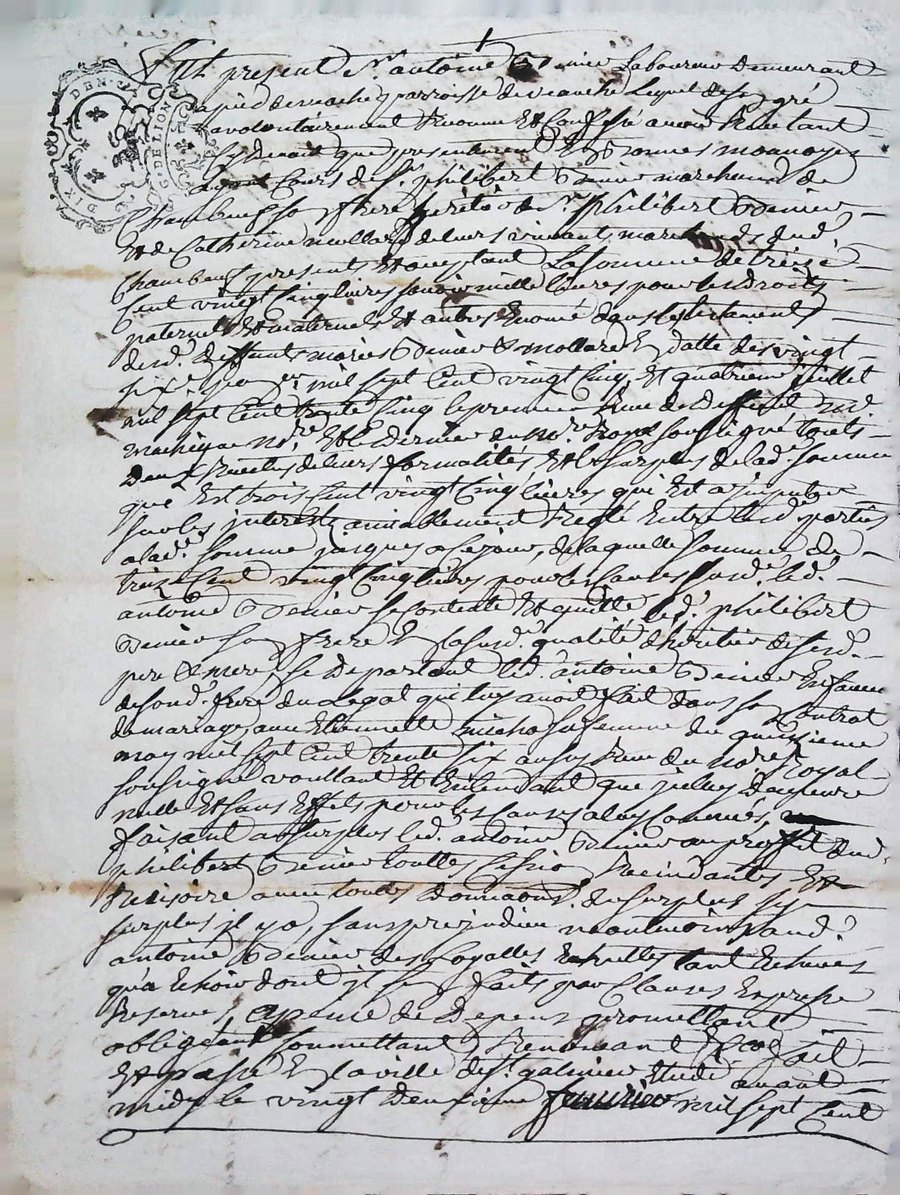 DIX DEN. G. DE LION
Fut present Sr. antoine Denier Laboureur Demeurant
a pied de vache parroisse de veauche Lequel de son gré
a volontairement Reconnu Et Confessé avoir Receu tant
cy devant que presentement En bonnes monnoyes
ayant Cours de Sr. philibert Denier marchand de
Chambeuf son frere heritier de Sr. philibert Denier
Et de Catherine mollard de leurs vivant marchands dud.
Chambeuf presents Et acceptant La somme de treize
Cent vingt Cinq livres scavoir mille livres pour les droits
paternels Et maternels Et autres Enoncé dans les testaments
desd. deffunts mariés Denier & mollard En datte des vingt
six mil sept Cent vingt Cinq, Et quatrieme juillet
mil sept Cent trente Cinq le premier Receu de Deffunt
nore. Et le Dernier du nore. Royal soussigné touts
Deux Revetus de leurs formalités Et le surplus de lade. somme
que Est trois Cent vingt Cinq livres qui Est a imputer
sur les interests amiablement Reglé Entre lesd. parties
a lade. somme jusques a Ce jour, de laquelle somme de
treize Cent vingt Cinq livres pour les Causes susd. led.
antoine Denier se Contente Et quitte led. philibert
Denier son frere En lasusd. qualité d'heritier desesd.
pere & mere, se Departant led. antoine Denier En faveur
de sond. frere du Legat qui luy avoit fait dans son Contrat
de mariage, avec Etiennette sa femme du quinzieme
may mil sept Cent trente six aussy Receu du nore. Royal
soussigné voullant Et Entendant que jcelluy demeure
nulle Et sans Effets pour les Causes a luy Connües,
faisant au surplus led. antoine Denier au profit dud.
philibert Denier touttes Cession Recindants Et
Resisoire avec touttes Donnaons. du surplus sy
surplus jl ya, sans prejudice neantmoins aud.
antoine Denier des Loyalles Echuttes tant Echeües
qu'a Echoir dont jl sen faits par Clauses Expresse
Reserves, a peine de Depens promettant
obligeant soumettant Renonsant fait
Et passé En la ville de St. galmier Etude avant
midy le vingt Deuxieme feuvrier mil sept Cent